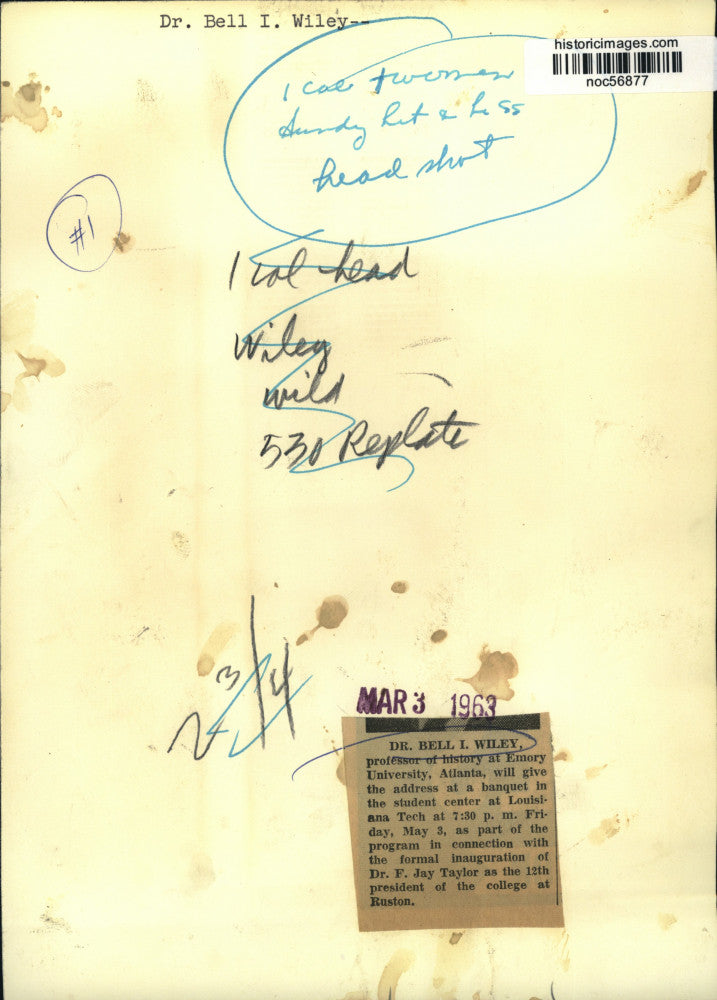 Dr. Bell I. Wiley--
historicimages.com
noc56877
1 col
head shot
#1
1 col head
Wiley
wild
530 Replate
3/4
MAR 3 1963
DR. BELL I. WILEY,
professor of history at Emory
University, Atlanta, will give
the address at a banquet in
the student center at Louisi-
ana Tech at 7:30 p. m. Fri-
day, May 3, as part of the
program in connection with
the formal inauguration of
Dr. F. Jay Taylor as the 12th
president of the college at
Ruston.